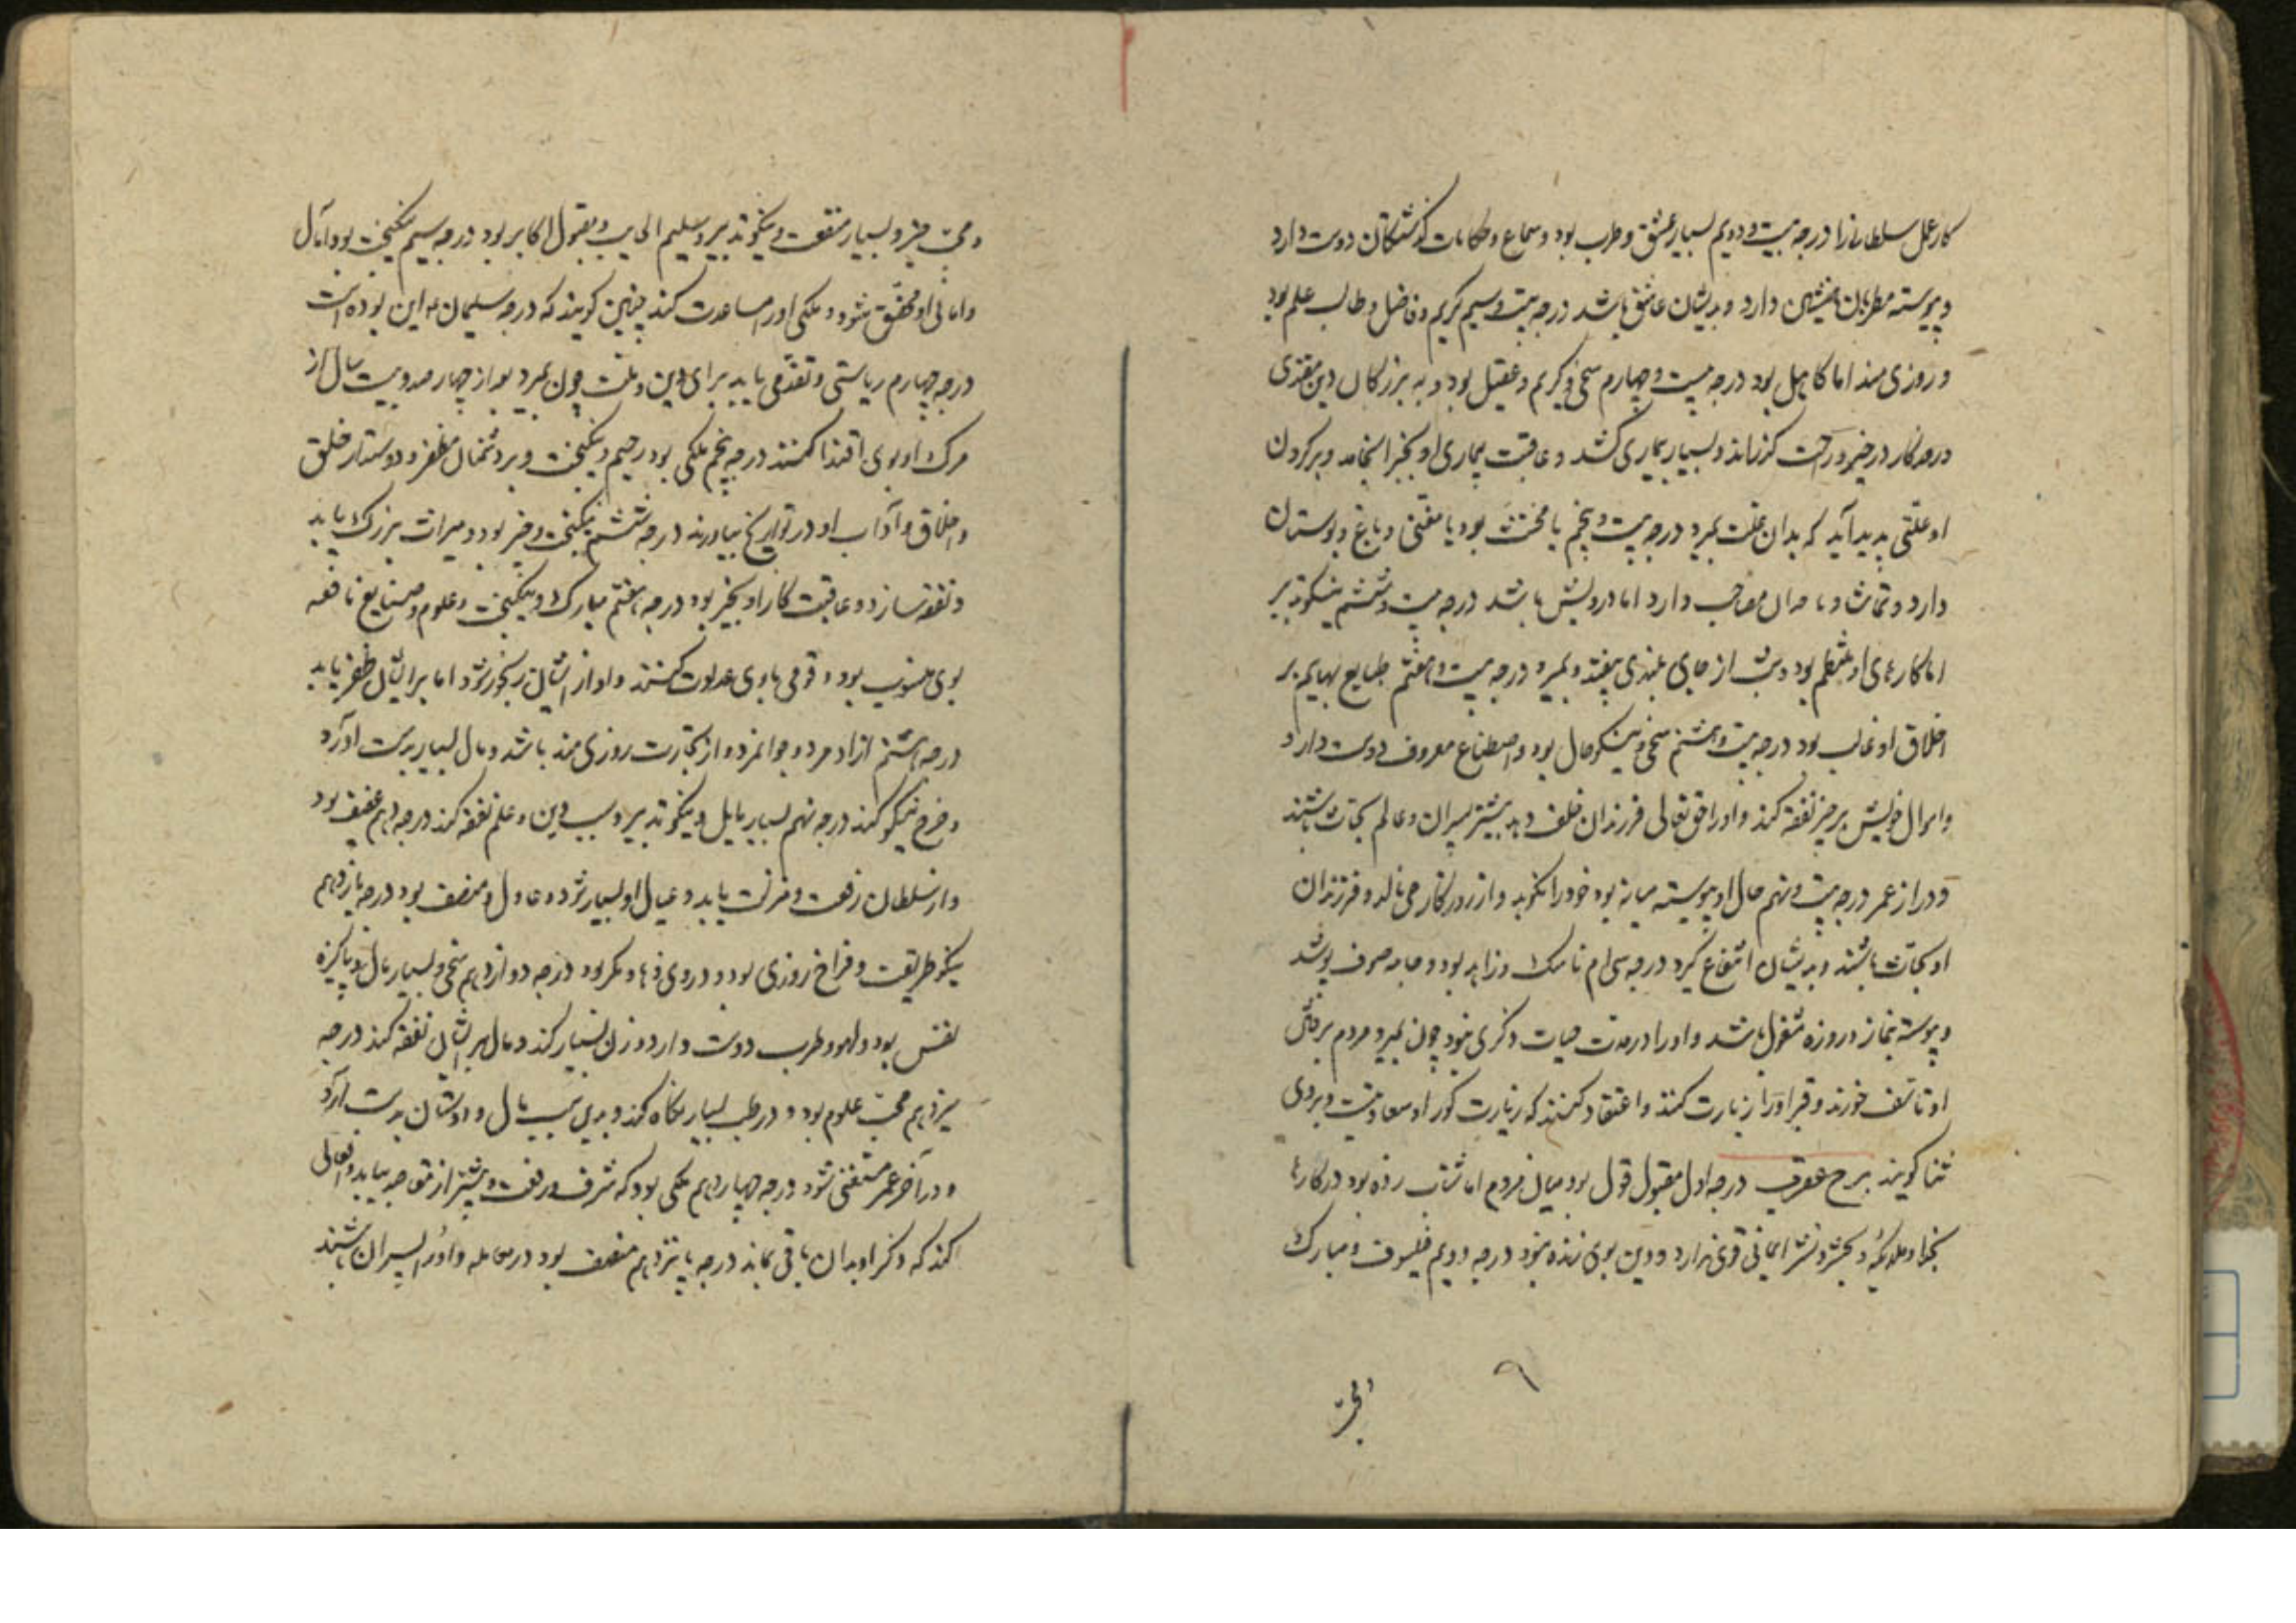 کار عمل سلطانرا درجه بیست و دویم بسیار عشق و طرب بود و سماع و حکایات گذشتگان دوست دارد
و پیوسته مطربان همنشین دارد و بدیشان عاشق باشد درجه بیست و سیم کریم و فاضل و طالب علم بود
و روزی مند اما کاهل بود درجه بیست و چهارم سخی و کریم و عقیل بود و به بزرگان دین مقتدی
در هر کار در خیر و راحت گذراند و بسیار بیماری کشد و عاقبت بیماری او بخیر انجامد و بر گردن
او علتی پدید آید که بدان علت بمیرد درجه بیست و پنجم یا مخنث بود یا مغنی و باغ و بوستان
دارد و تماشا و با مصاحب دارد اما درویش باشد درجه بیست و ششم نیکو تدبیر
اما کارهای او منتظم بود و از جای بلندی بیفتد و بمیرد درجه بیست و هفتم طبایع بهایم بر
اخلاق او غالب بود درجه بیست و هشتم سخی و نیکو حال بود و اصطناع معروف دوست دارد
و اموال خویش بر خیر نفقه کند و او را حق تعالی فرزندان خلف دهد بیشتر پسران و عالم بنجات باشند
و دراز عمر درجه بیست و نهم حال او پیوسته میانه بود خود را نکوهد و از روزگار می نالد و فرزندان
او بنجات باشند و بدیشان انتفاع گیرد درجه سی ام ناسک و زاهد بود و جامه صوف پوشد
و پیوسته بنماز و روزه مشغول باشد و او را در مدت حیات ذکری نبود چون بمیرد مردم بر وفات
او تاسف خورند و قبر او را زیارت کنند و اعتقاد کنند که زیارت گور او سعادتست و بروی
ثنا گویند برج عقرب درجه اول مقبول قول بود میان مردم اما شتاب زده بود در کارها
بخدا و ملایکه و بحشر و نشر ایمانی قوی ندارد و دین بوی زنده بود درجه دویم فیلسوف و مبارک
و محب
و محب خیر و بسیار منفعت و نیکو تدبیر و سلیم و مقبول اکابر بود درجه سیم نیکبخت بود و آمال
و امانی او محقق شود و ملکی او را مساعدت کند چنین گویند که درجه سلیمان ع این بوده است
درجه چهارم ریاستی و تقدمی یابد برای دین و ملت چون بمیرد بعد از چهار صد و بیست سال از
مرگ او بوی اقتدا کنند درجه پنجم ملکی بود رحیم و نیکبخت و بر دشمنان مظفر و دوستدار خلق
و اخلاق و آداب او در تواریخ بیاورند درجه ششم نیکبخت و خیر بود و میراث بزرگ یابد
و نفقه سازد و عاقبت کار او بخیر بود درجه هفتم مبارک و نیکبخت و علوم و صنایع نافعه
بوی منسوب بود و قومی با وی عداوت کنند و او از ایشان رنجور شود اما بر ایشان ظفر یابد
درجه هشتم آزاد مرد و جوانمرد و از تجارت روزی مند باشد و مال بسیار بدست آورد
و خرج نیکو کند درجه نهم بسیار مایل و نیکو تدبیر و بسبب دین و علم نفقه کند درجه دهم عفیف بود
و از سلطان رفعت و منزلت یابد و عیال او بسیار شود و عادل و منصف بود درجه یازدهم
نیکو طریقت و فراخ روزی بود و در وی دها و مکر بود درجه دوازدهم سخی و بسیار مال و پاکیزه
نفس بود و لهو و طرب دوست دارد و زن بسیار کند و مال بر ایشان نفقه کند درجه
سیزدهم محب علوم بود و در طب بسیار نگاه کند و بدین سبب مال و ادیشان بدست آرد
و در آخر عمر مستغنی شود درجه چهاردهم ملکی بود که شرف و رفعت بیشتر از متقاضی بیابد و افعالی
کند که ذکر او بدان باقی بماند درجه پانزدهم منصف بود در معامله و او را پسران باشند